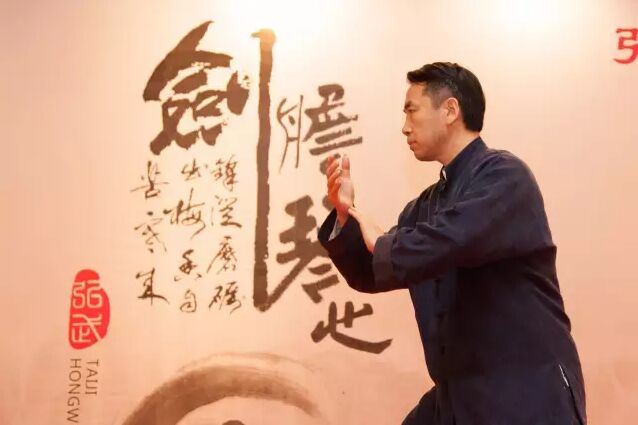 劍膽琴心
鋒從磨礪
出梅香自
苦寒來
弘武
TAIJI
HONGW